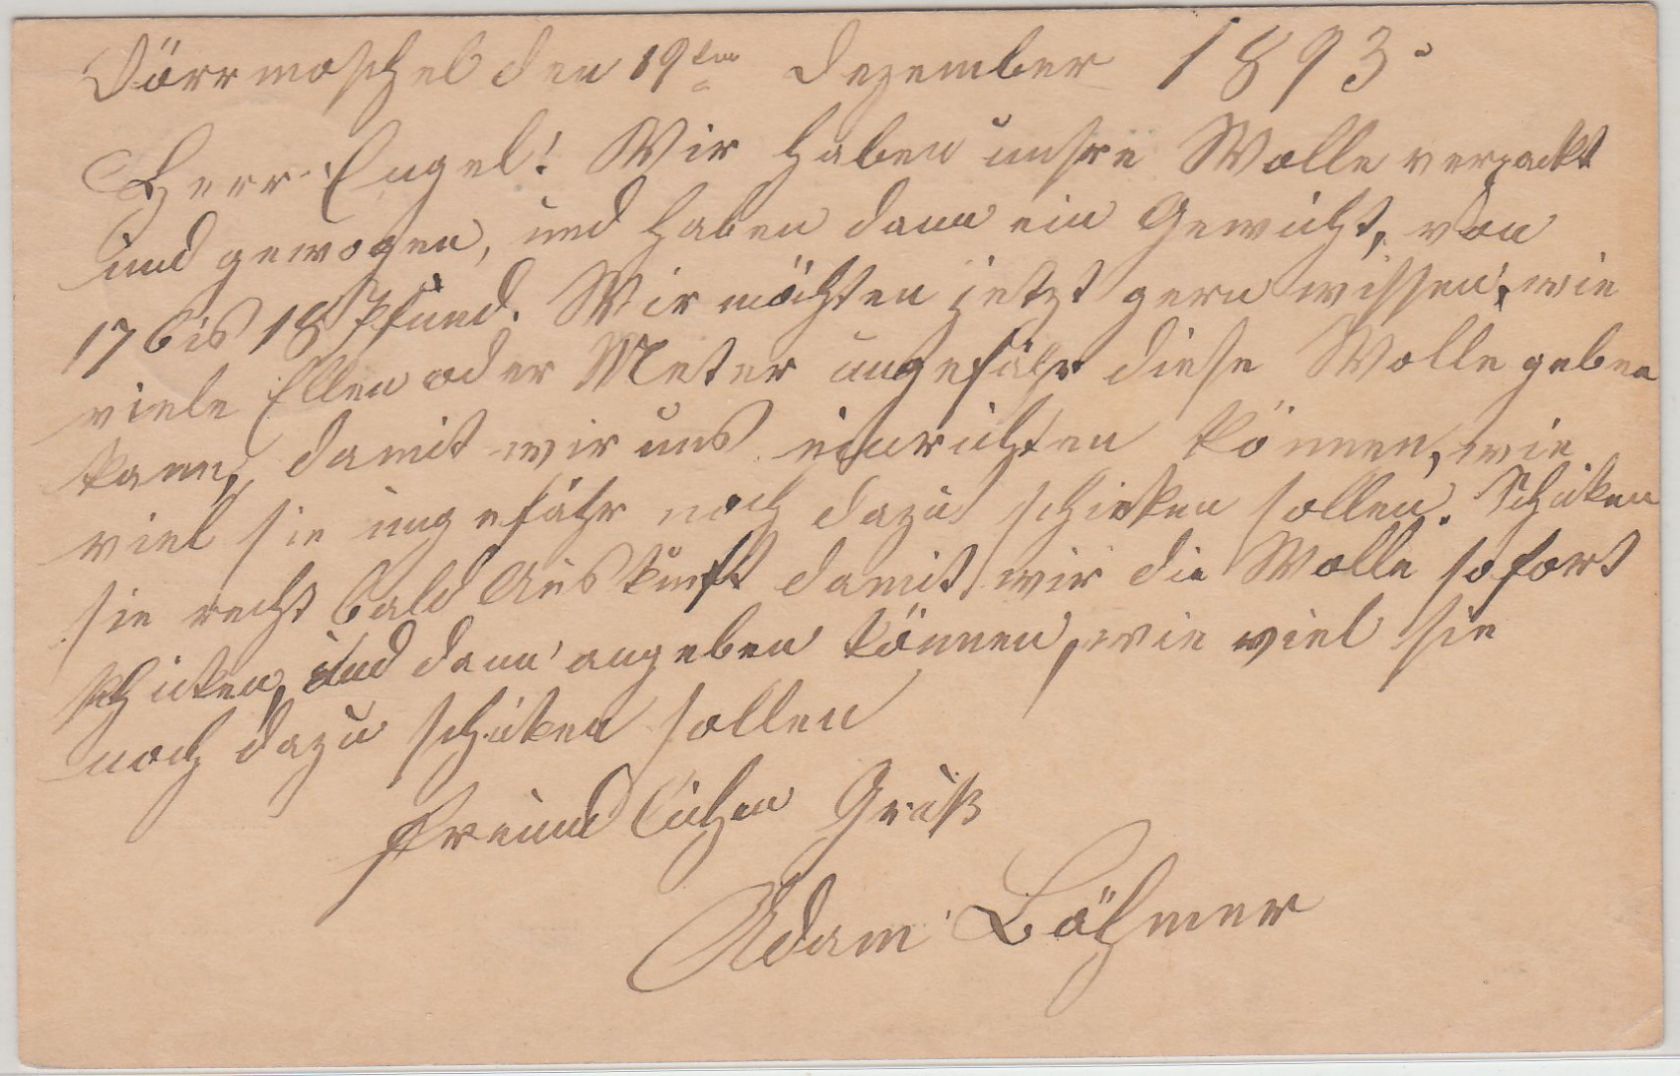 Dörrmoschel den 19ten Dezember 1893.
Herr Engel! Wir haben unsre Wolle verpackt
und gewogen, und haben dann ein Gewicht, von
17 bis 18 Pfund. Wir möchten jetzt gern wissen, wie
viele Ellen oder Meter ungefähr diese Wolle geben
kann, damit wir uns einrichten können, wie
viel sie ungefähr noch dazu schicken sollen. Schicken
sie recht bald Auskunft damit wir die Wolle sofort
schicken, und dann angeben können, wie viel sie
noch dazu schicken sollen
Freundlichen Gruß
Adam Böhmer